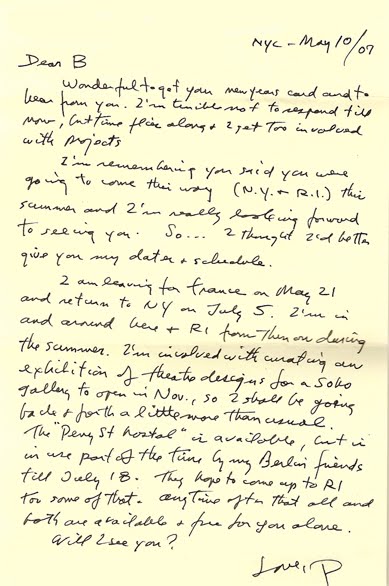 NYC - May 10/07
Dear B
Wonderful to get your new years card and to
hear from you. I'm terrible not to respond till
now, but time flies along & I get too involved
with projects
I'm remembering you said you were
going to come this way (N.Y. & R.I.) this
summer and I'm really looking forward
to seeing you. So... I thought I'd better
give you my dates & schedule.
I am leaving for France on May 21
and return to NY on July 5. I'm in
and around here & RI from then on during
the summer. I'm involved with curating an
exhibition of theatre designs for a Soho
gallery to open in Nov., so I shall be going
back & forth a little more than usual.
The "Perry St hostal" is available, but is
in use part of the time by my Berlin friends
till July 18. They hope to come up to RI
for some of that. anytime after that all and
both are available & free for you alone.
Will I see you?
Love, P